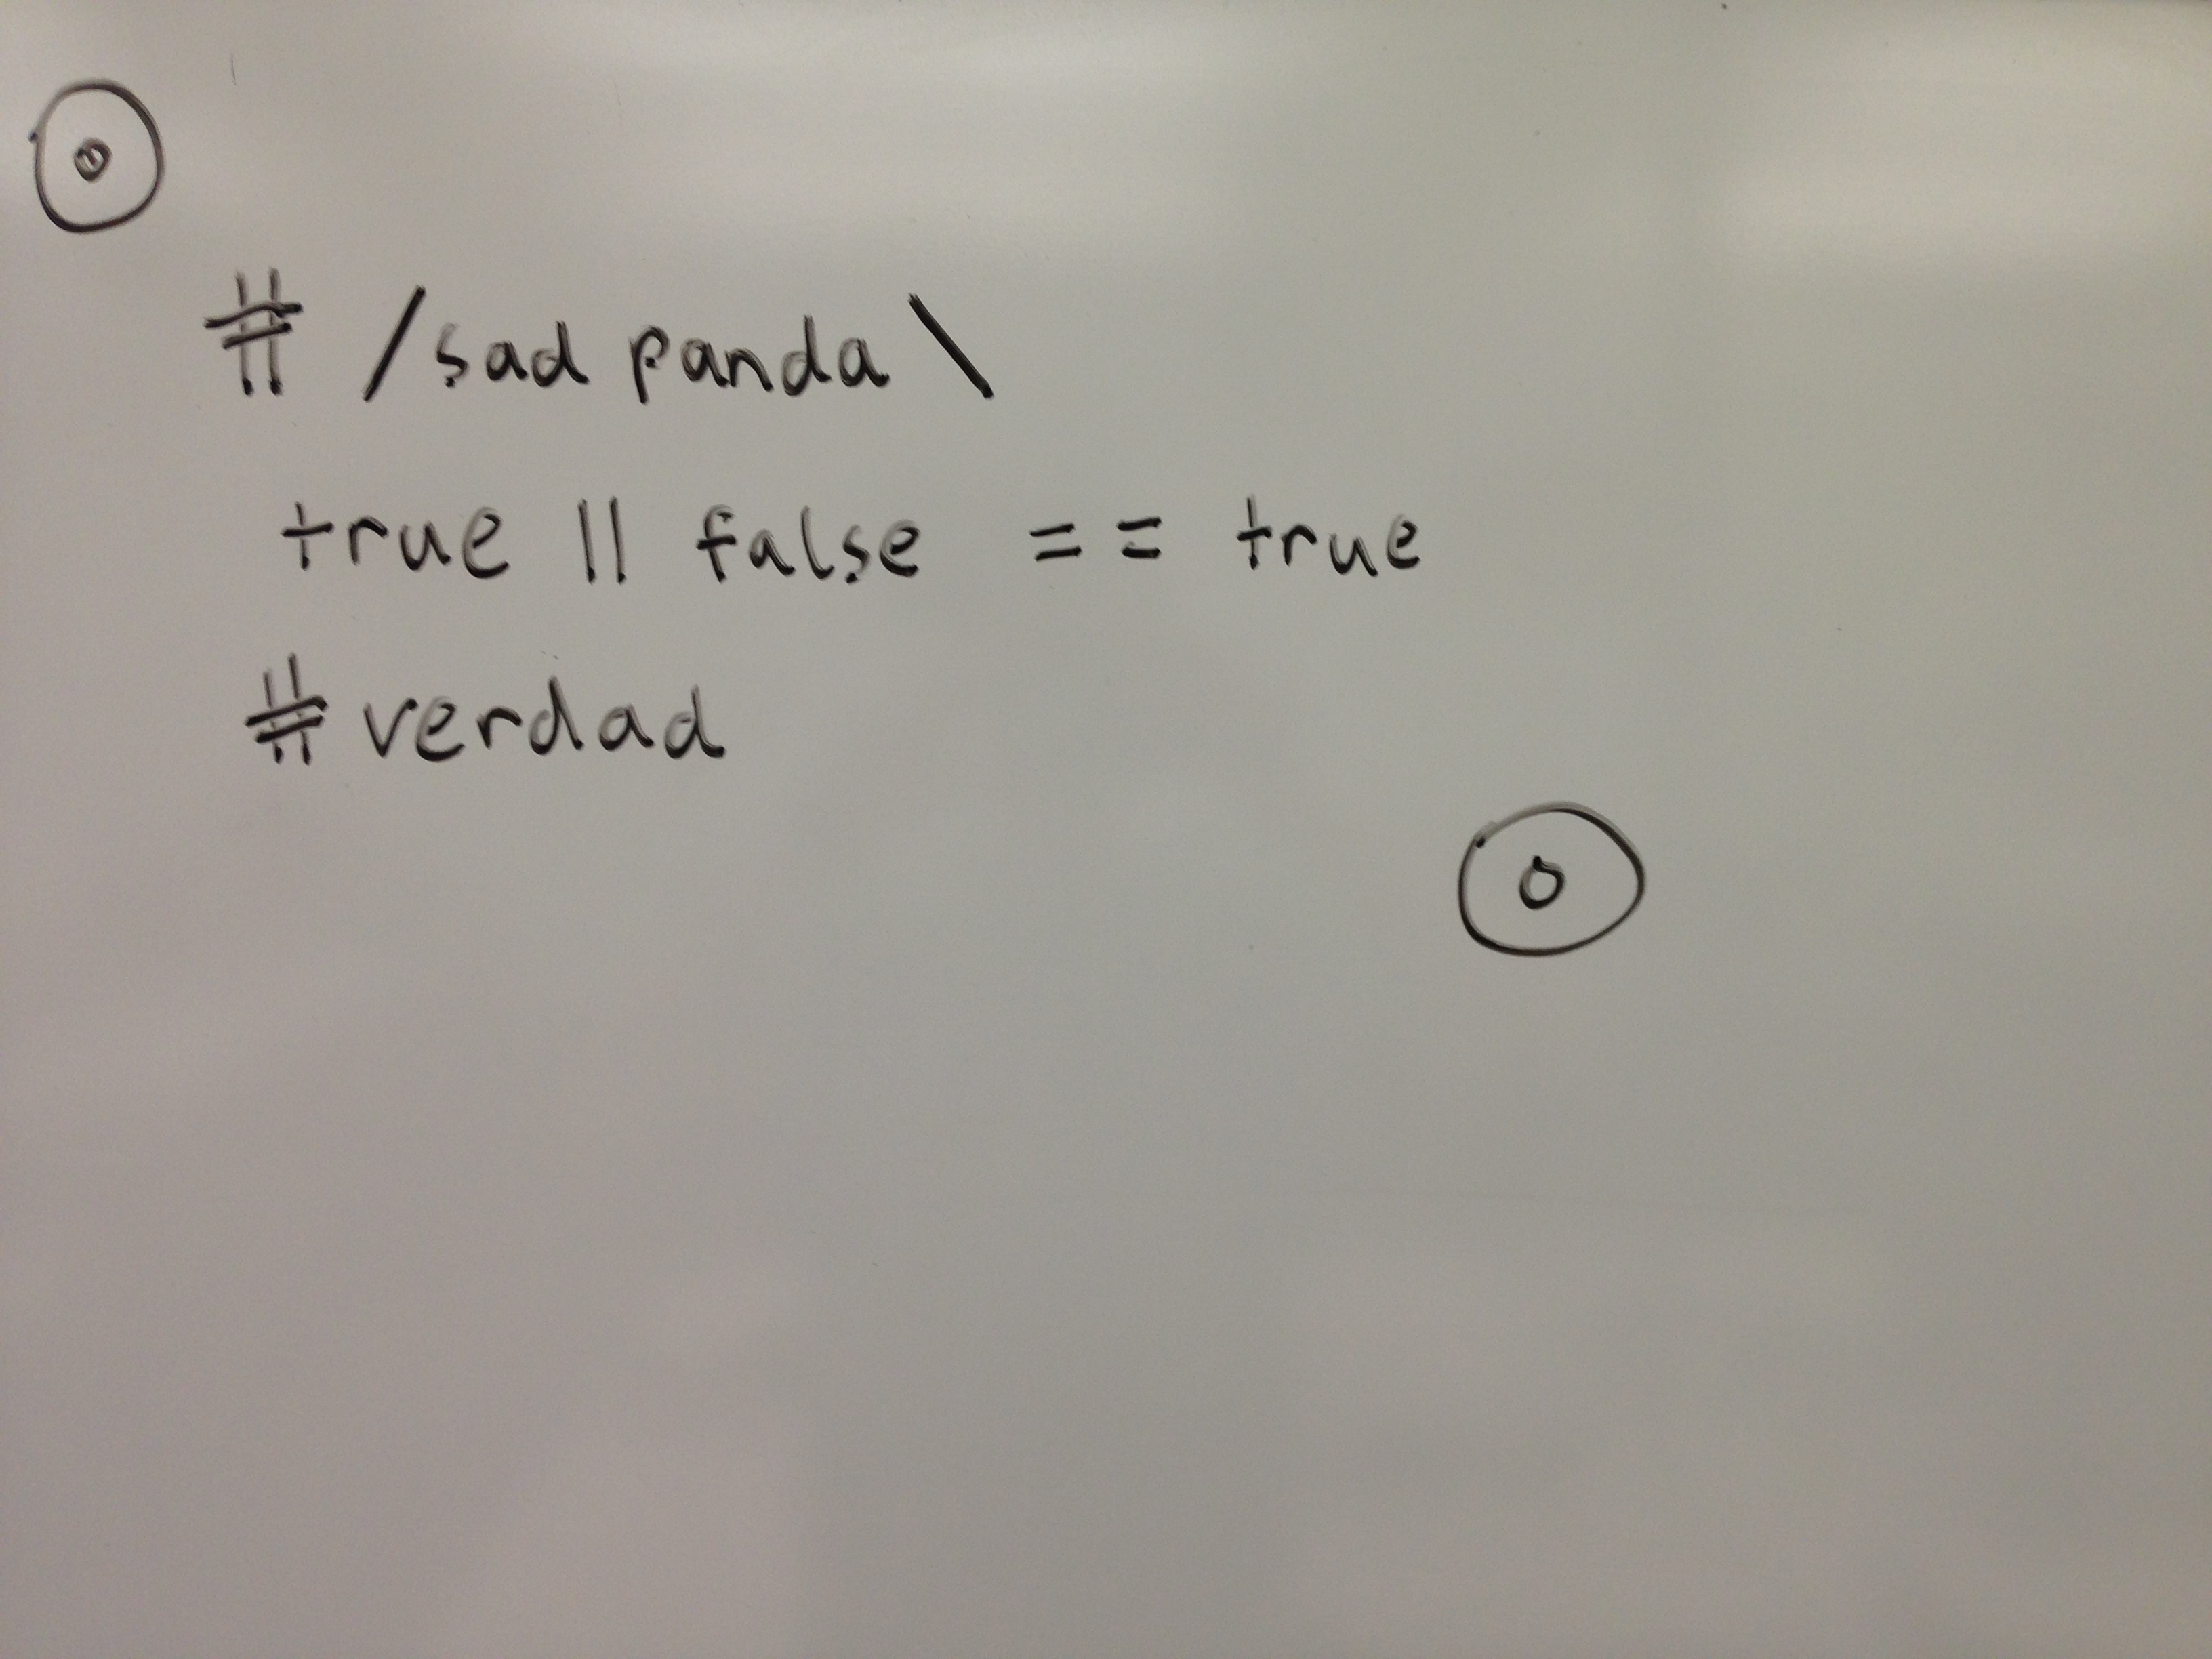 # /sad panda \
true || false == true
#verdad